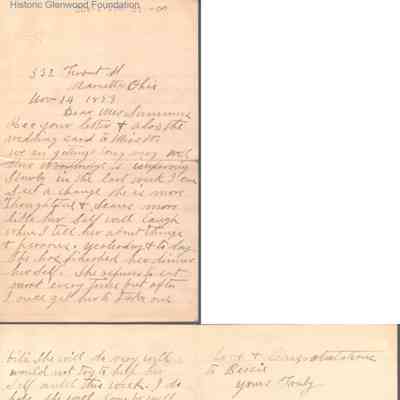 Historic Glenwood Foundation
332 Front St
Marietta Ohio
Nov 14 1898
Dear Mrs
Rec your letter & also the
wedding card to Miss
we are getting long very well
Mrs is improving
slowly in the last week I can
I see a change she is more
thoughtful & seams more
like her Self will laugh
when I tell her about things
& persons. yesterday & to day
She has finished her dinner
her self. She refuses to eat
most every time but after
I once get her to take one
bite she will do very well
would not try to help her
self until this week. I do
hope she will
Love & Congratulations
to Bessie
yours Truly